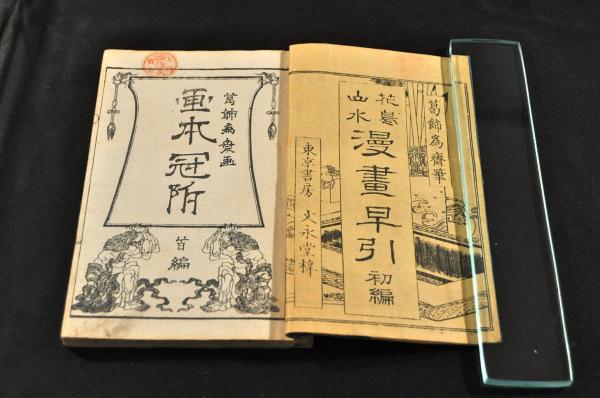 葛飾為齋筆
花鳥
山水
漫畫早引
初編
東京書房 文永堂梓
葛飾為斎画
画本冠附
首編